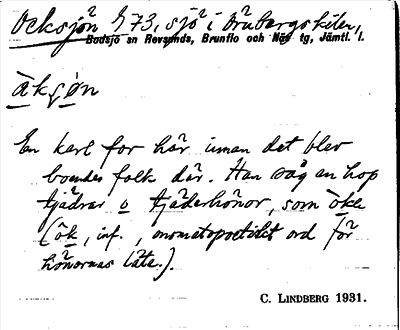 Ocksjön 973, sjö i Öråbergskilen,
Bodsjö sn Revsunds, Brunflo och Näs tg, Jämtl. l.
àksøn
En karl for här innan det blev
boendes folk där. Han såg en hop
tjädrar o tjäderhönor, som ökte
(ök, inf., onomatopoetiskt ord för
hönornas läte.).
C. LINDBERG 1931.